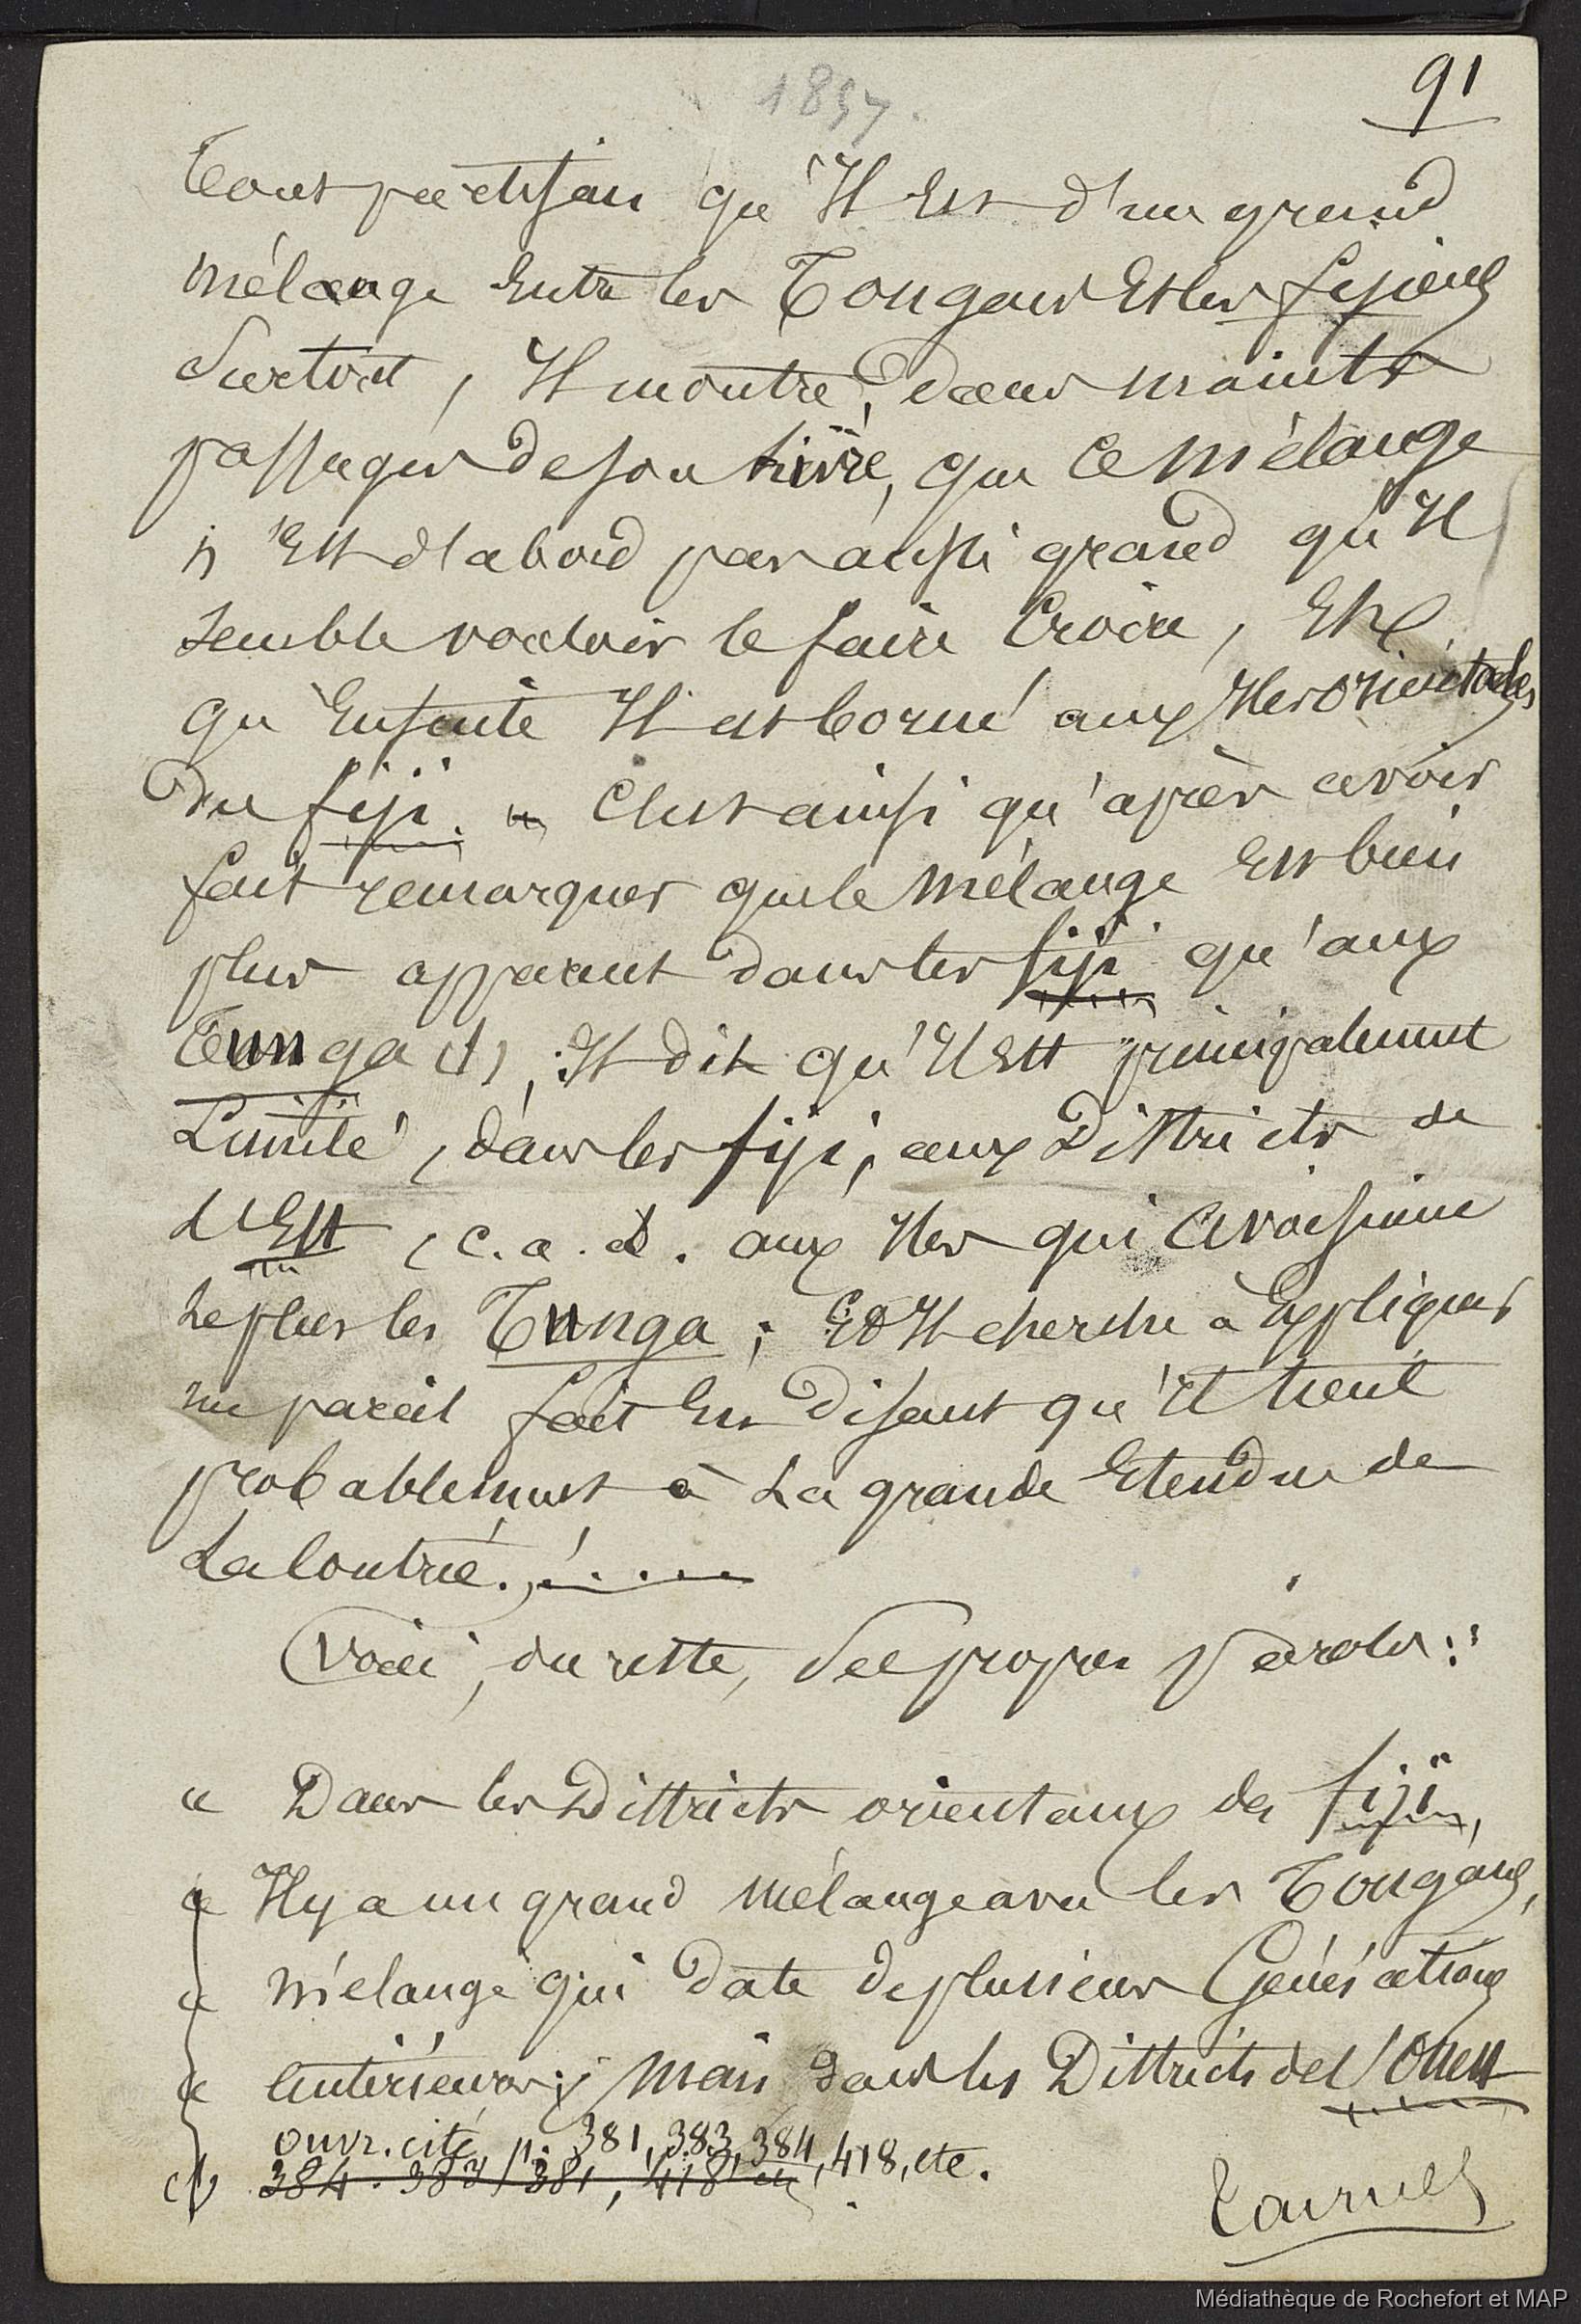 1857.
91
tout partisan qu'Il Est d'un grand
mélange Entre les Tongans Et les fijiens
Surtout, Il montre, dans maints
passages de son livre, que Ce mélange
n'Est d'abord pas aussi grand qu'Il
semble vouloir le faire Croire, Et
qu'Ensuite Il est borné aux Iles orientales
des fiji. C'est ainsi qu'après avoir
fait remarquer que le mélange Est bien
plus apparent dans les fiji qu'aux
Tunga (1), Il dit qu'Il Est principalement
Limité, dans les fiji, aux Districts de
L'Est, c. a. d. aux Iles qui Avoisinent
le plus les Tunga; Et Il cherche à Expliquer
un pareil fait En disant qu'Il tient
probablement à La grande Etendue de
La Contrée.!....
Voici, du reste, Ses propres paroles:
" Dans les Districts orientaux des fiji,
" Il y a un grand mélange avec les Tongans,
" mélange qui Date de plusieurs Générations
" antérieures; Mais dans les Districts de l'Ouest
ouvr. cité, p. 381, 383, 384, 418, etc.
(1) 384. 383, 381, 418 etc
Tournez
Médiathèque de Rochefort et MAP